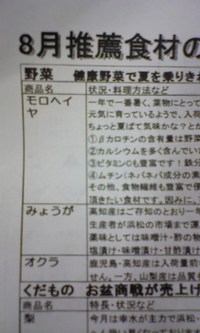 8月推薦食材の
野菜 健康野菜で夏を乗りき
商品名 状況・料理方法など
モロヘイヤ 一年で一番暑く、葉物にとって
元気に育っているようで、入荷
ちょっと夏ばて気味かな?とか
①βカロチンの含有量は野菜
②カルシウムを多く含んでい
③ビタミンCも豊富です!鉄分
④ムチン(ネバネバ成分の素
その他、食物繊維も豊富で便
頂きたい食材です。因みに、
みょうが 高知産はご存知のとおり一年
生産者が浜松の市場まで運
薬味としては味噌汁・酢の物
塩漬け・味噌漬け・甘酢漬け
オクラ 鹿児島・高知産は入荷量前
せん。一方、山梨産は品質
くだもの お盆商戦が売上げ
商品名 特長・状況など
梨 今月は幸水が主力で浜松に